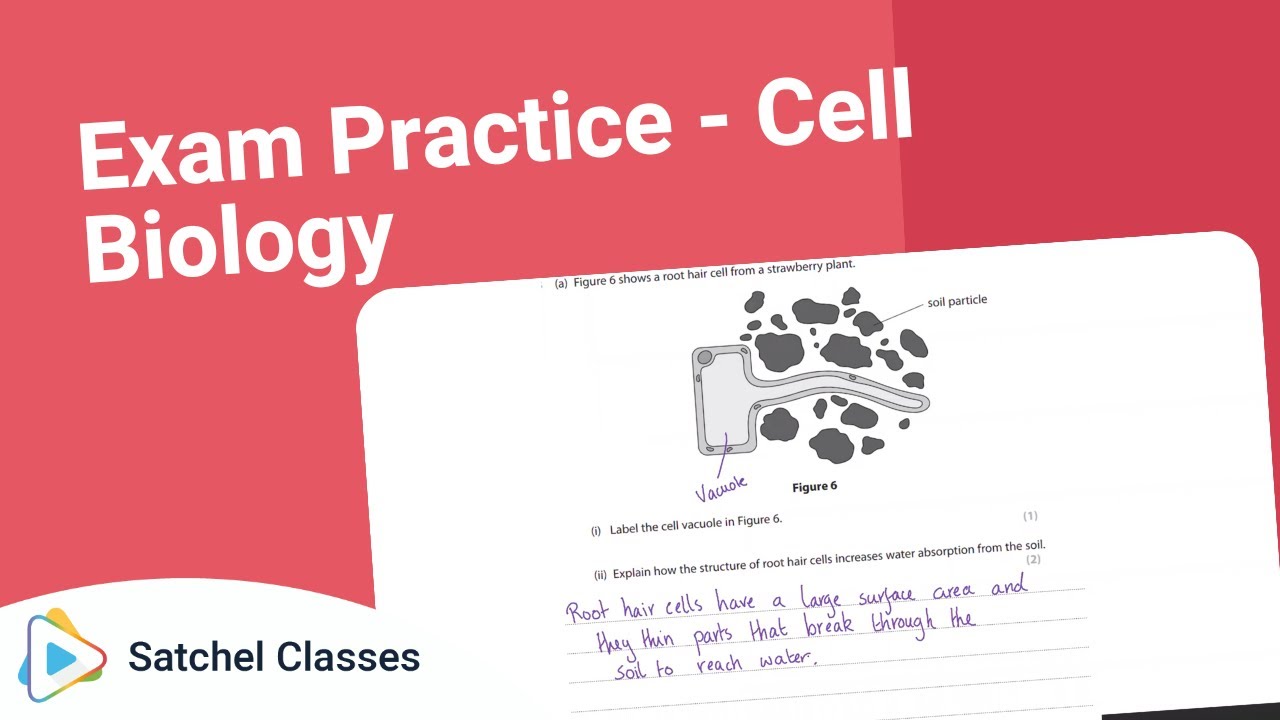 Exam Practice - Cell
Biology
(a) Figure 6 shows a root hair cell from a strawberry plant.
soil particle
Vacuole
Figure 6
(i) Label the cell vacuole in Figure 6.
(1)
(ii) Explain how the structure of root hair cells increases water absorption from the soil.
(2)
Root hair cells have a large surface area and
they thin parts that break through the
soil to reach water.
Satchel Classes